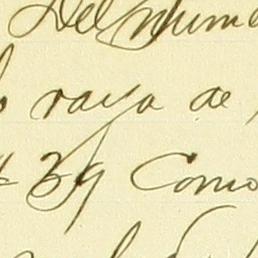 Del nume
raya de
39 Como